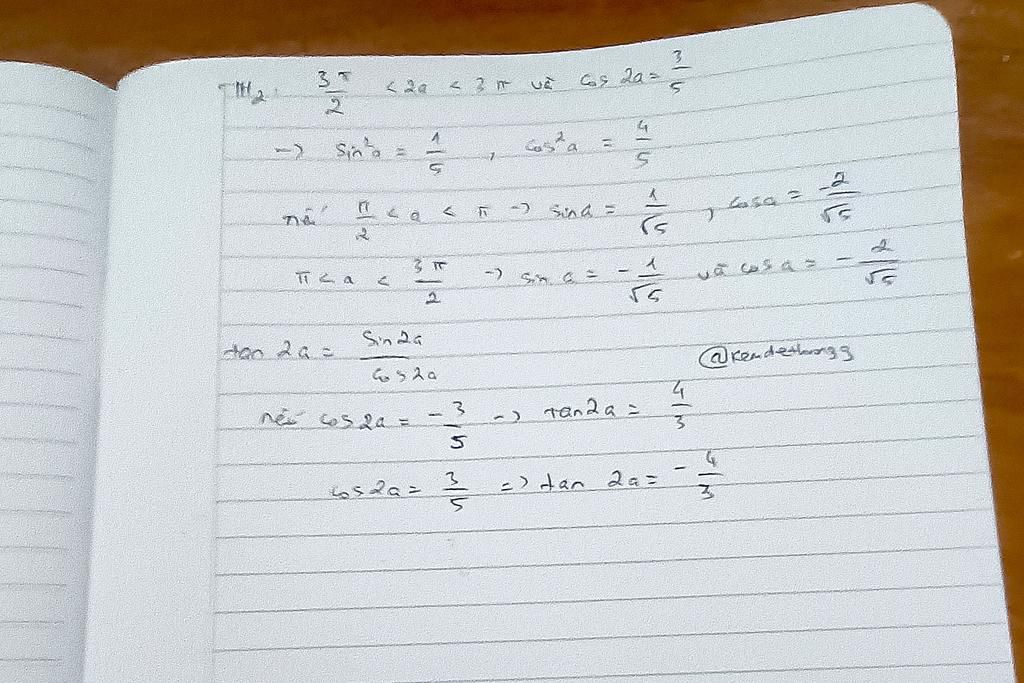 TH2: 3π/2 < 2a < 3π và cos 2a = 3/5
-> sin²a = 1/5 , cos²a = 4/5
nếu π/2 < a < π -> sina = 1/√5 , cosa = -2/√5
π < a < 3π/2 -> sin a = -1/√5 và cos a = -2/√5
tan 2a = sin2a/cos2a
nếu cos2a = -3/5 -> tan2a = 4/3
cos2a = 3/5 => tan 2a = -4/3